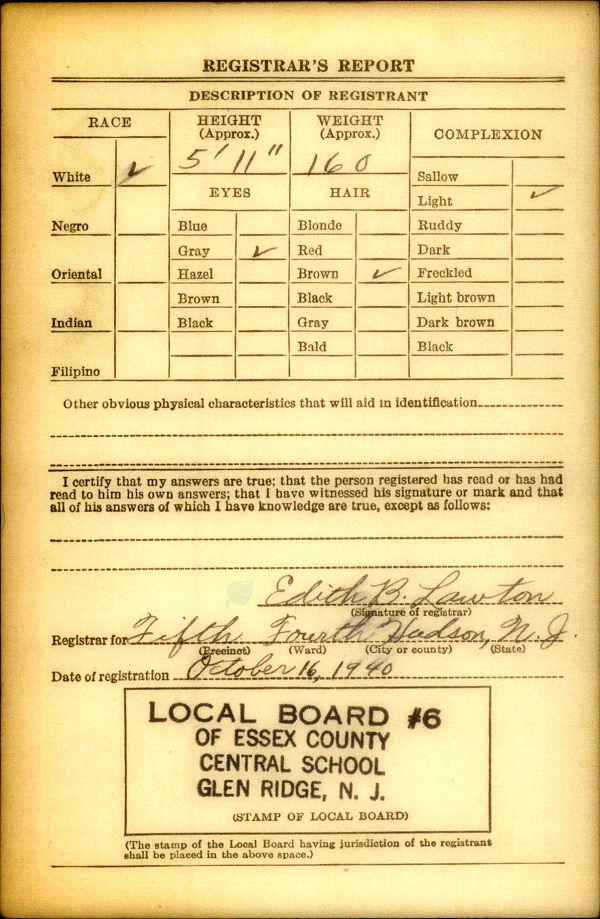 REGISTRAR'S REPORT
DESCRIPTION OF REGISTRANT
RACE
HEIGHT
(Approx.)
WEIGHT
(Approx.)
COMPLEXION
5' 11"
160
White ✓
Sallow
Light ✓
EYES
HAIR
Negro
Blue
Blonde
Ruddy
Gray ✓
Red
Dark
Oriental
Hazel
Brown ✓
Freckled
Brown
Black
Light brown
Indian
Black
Gray
Dark brown
Bald
Black
Filipino
Other obvious physical characteristics that will aid in identification
I certify that my answers are true; that the person registered has read or has had
read to him his own answers; that I have witnessed his signature or mark and that
all of his answers of which I have knowledge are true, except as follows:
Edith B. Lawton
(Signature of registrar)
Registrar for Fifth Fourth Hudson, N. J.
(Precinct) (Ward) (City or county) (State)
Date of registration October 16, 1940
LOCAL BOARD #6
OF ESSEX COUNTY
CENTRAL SCHOOL
GLEN RIDGE, N. J.
(STAMP OF LOCAL BOARD)
(The stamp of the Local Board having jurisdiction of the registrant
shall be placed in the above space.)